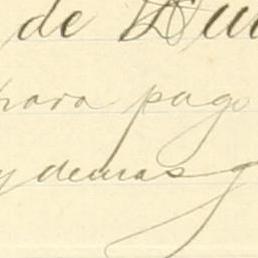 de
para pago
y demas